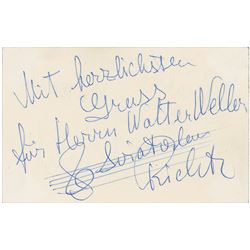 Mit herzlichsten
Gruss
für Herrn Walter Weller
Sviatoslav
Richter